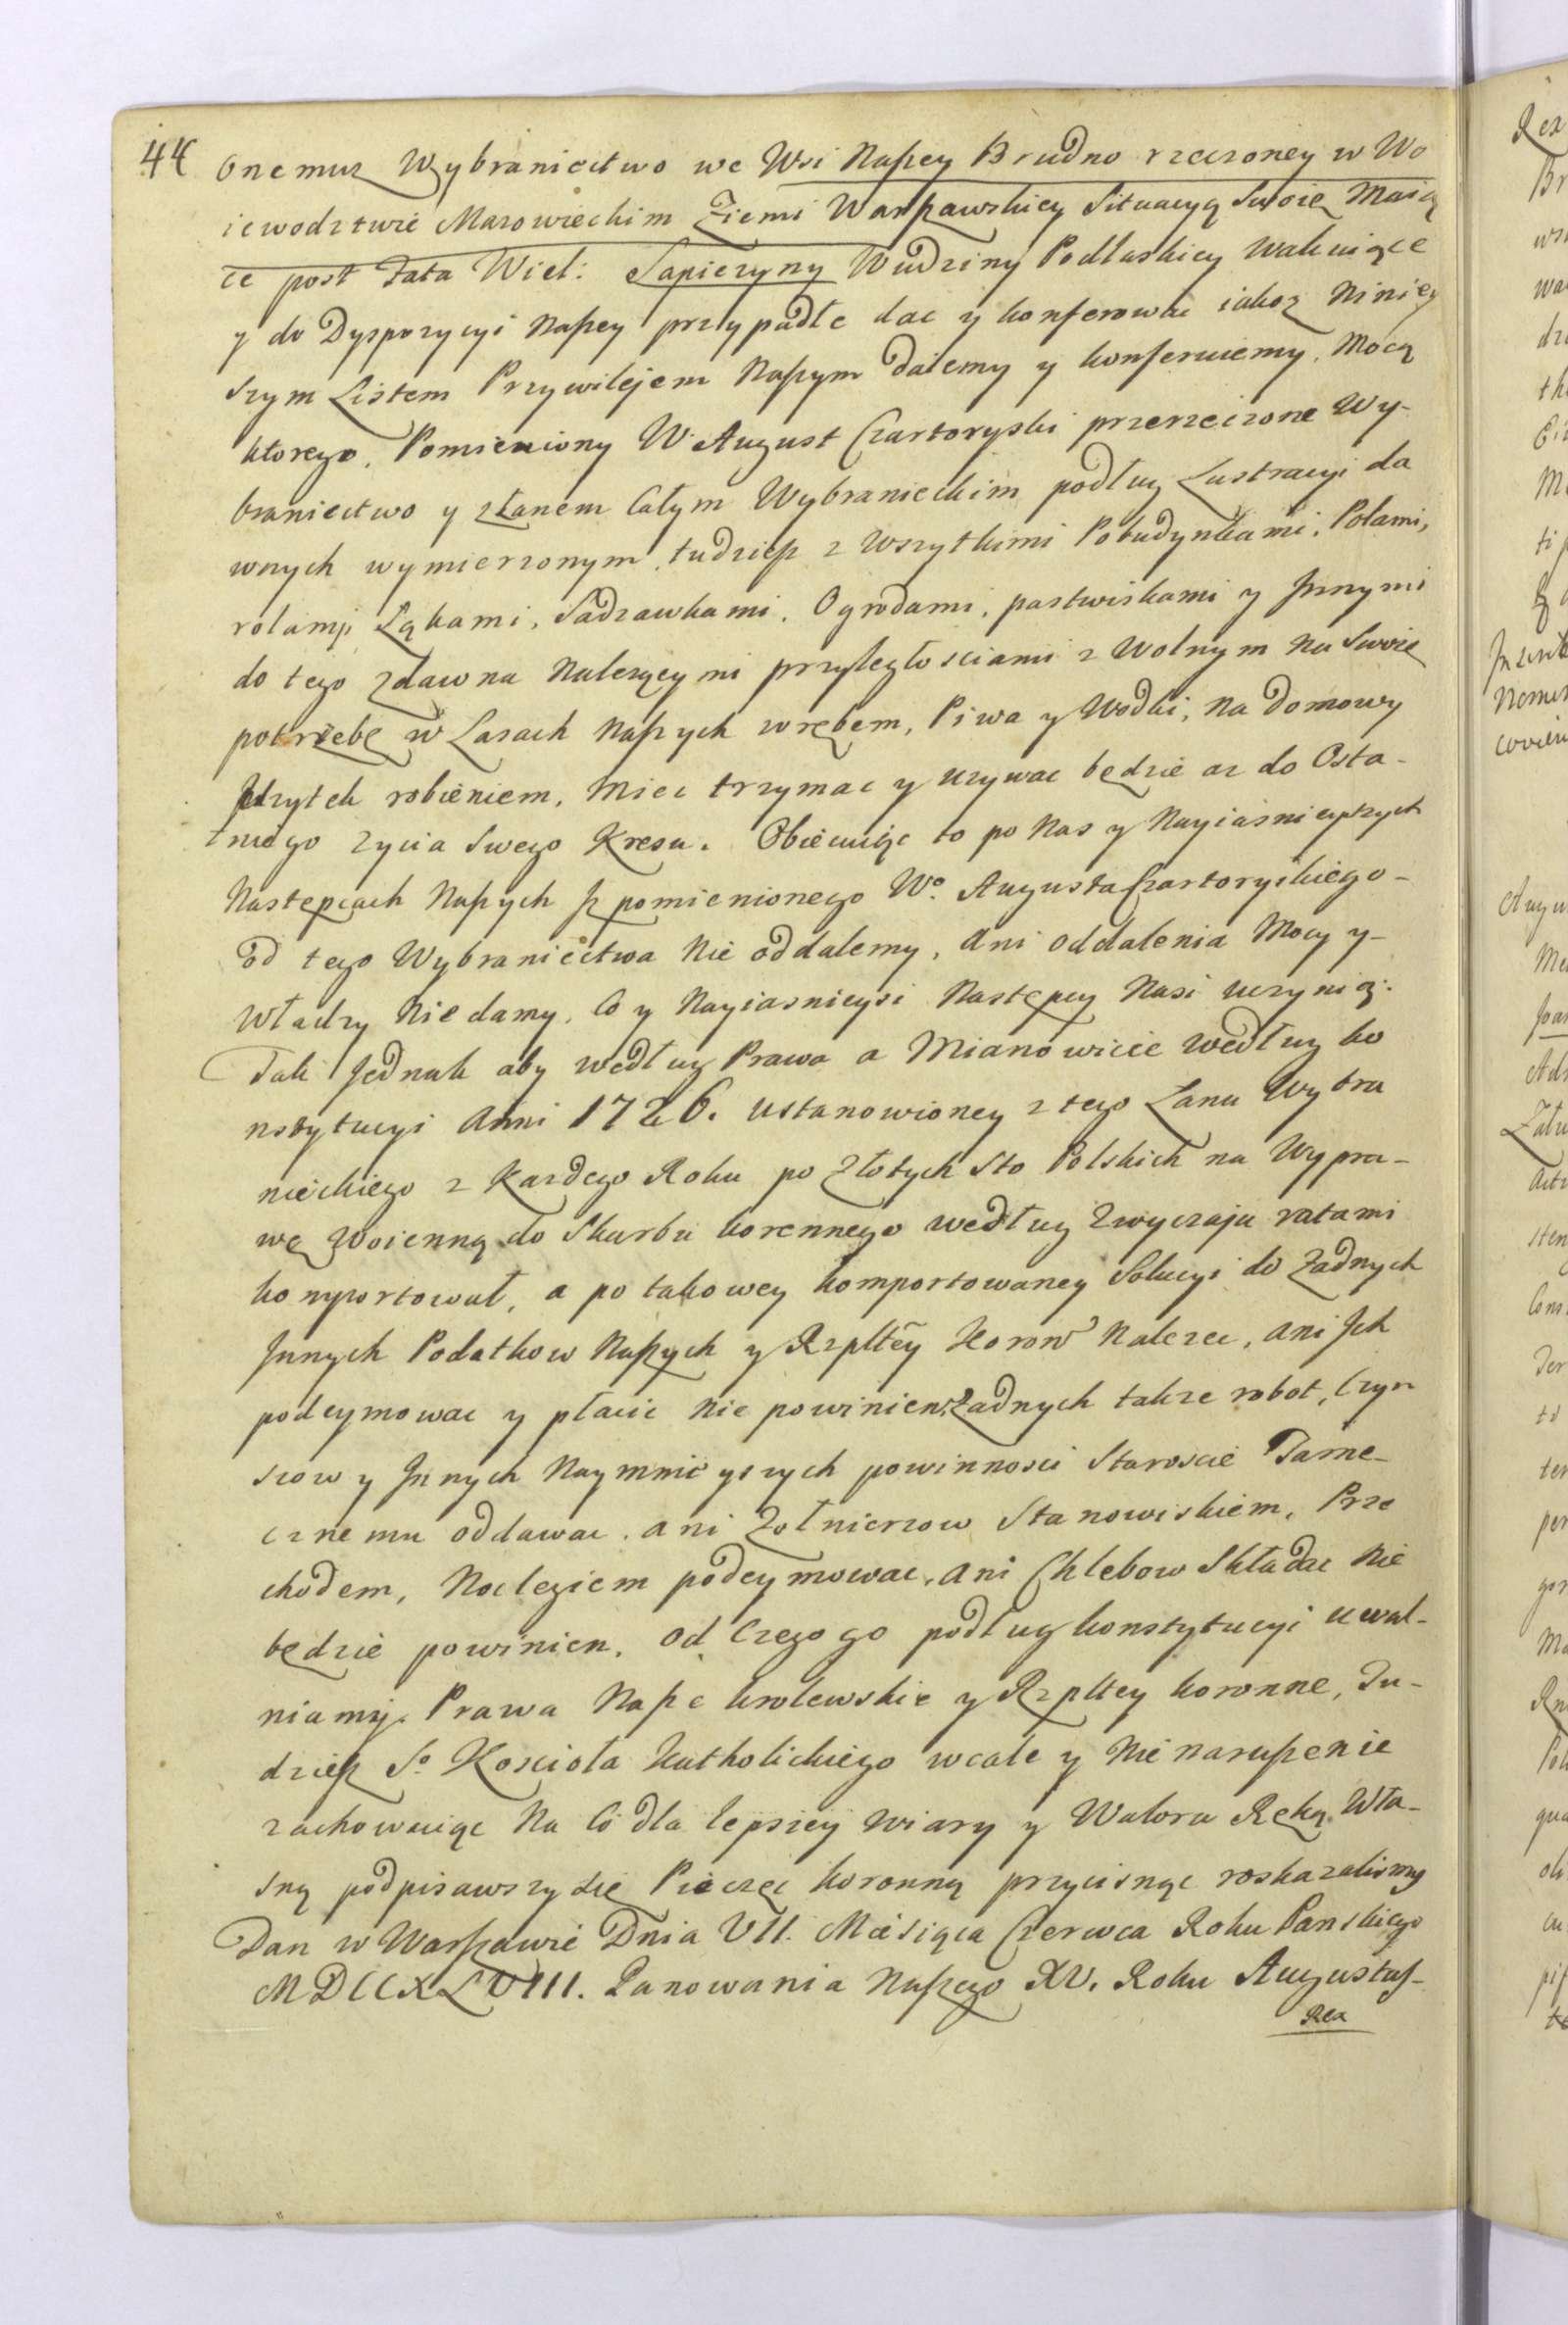 44 onemuz Wybraniectwo we Wsi Naszey Brudno rzeczoney w Wo
iewodztwie Mazowieckim Ziemi Warszawskiey Situacyą Swoię Maią
ce post Fata Wiel: Sapiezyny Wudziny Podlaskiey wakuiące
y do Dyspozycyi Naszey przypadłe dac y konferowac iakoz Niniey
szym Listem Przywilejem Naszym daiemy y konferuiemy. Mocą
ktorego, Pomieniony W. August Czartoryski przerzeczone Wy-
braniectwo y złanem Całym Wybranieckim podług Lustracyi da
wnych wymierzonym, tudziesz z Wszytkimi Pobudynkami, Polami,
rolami, Łąkami, Sadzawkami, Ogrodami, pastwiskami y Jnnymi
do tego zdawna Nalezącymi przyległosciami z Wolnym na Swoię
potrzebę w Lasach Naszych wrębem, Piwa y Wodki, na Domowy
szytek robieniem, Miec trzymac y uzywac będzie az do Osta-
tniego zycia Swego Kresu. Obiecuiąc to po Nas y Nayiasnieyszych
Następcach Naszych Jz pomienionego Wo. Augusta Czartoryskiego-
od tego Wybraniectwa Nie oddalemy, ani oddalenia Mocy y-
Władzy Nie damy, Co y Nayiasnieysi Następcy Nasi uczynią.
Tak Jednak aby według Prawa a Mianowicie według ko
nstytucyi Anni 1726. ustanowioney z tego Łanu Wybra
nieckiego z Kazdego Roku po Złotych Sto Polskich na Wypra-
wę Woienną do Skarbu korennego według Zwyczaju ratami
komportował, a po takowey komportowaney Solucyi do Zadnych
Jnnych Podatkow Naszych y Rzpltey Koron Nalezec, ani Jch
podeymowac y płacic Nie powinien, Zadnych takze robot, Czyn
szow y Jnnych Naymnieyszych powinnosci Staroscie Tame-
cznemu oddawac. ani Zołnierzow Stanowiskiem, Prze
chodem, Noclegiem podeymowac, ani Chlebow Składac Nie
będzie powinien, od Czego go podług konstytucyi uwal-
niamy. Prawa Nasze krolewskie y Rzpltey koronne, Tu-
dziesz So. Koscioła Katholickiego wcale y Nie naruszenie
zachowuiąc Na Co dla lepszey wiary y Waloru Ręką Wła-
sną podpisawszy się Pieczęc koronną przycisnąc roskazalismy
Dan w Warszawie Dnia VII. Miesiąca Czerwca Roku Panskiego
MDCCXLVIII. Panowania Naszego XV. Roku Augustus-
Rex